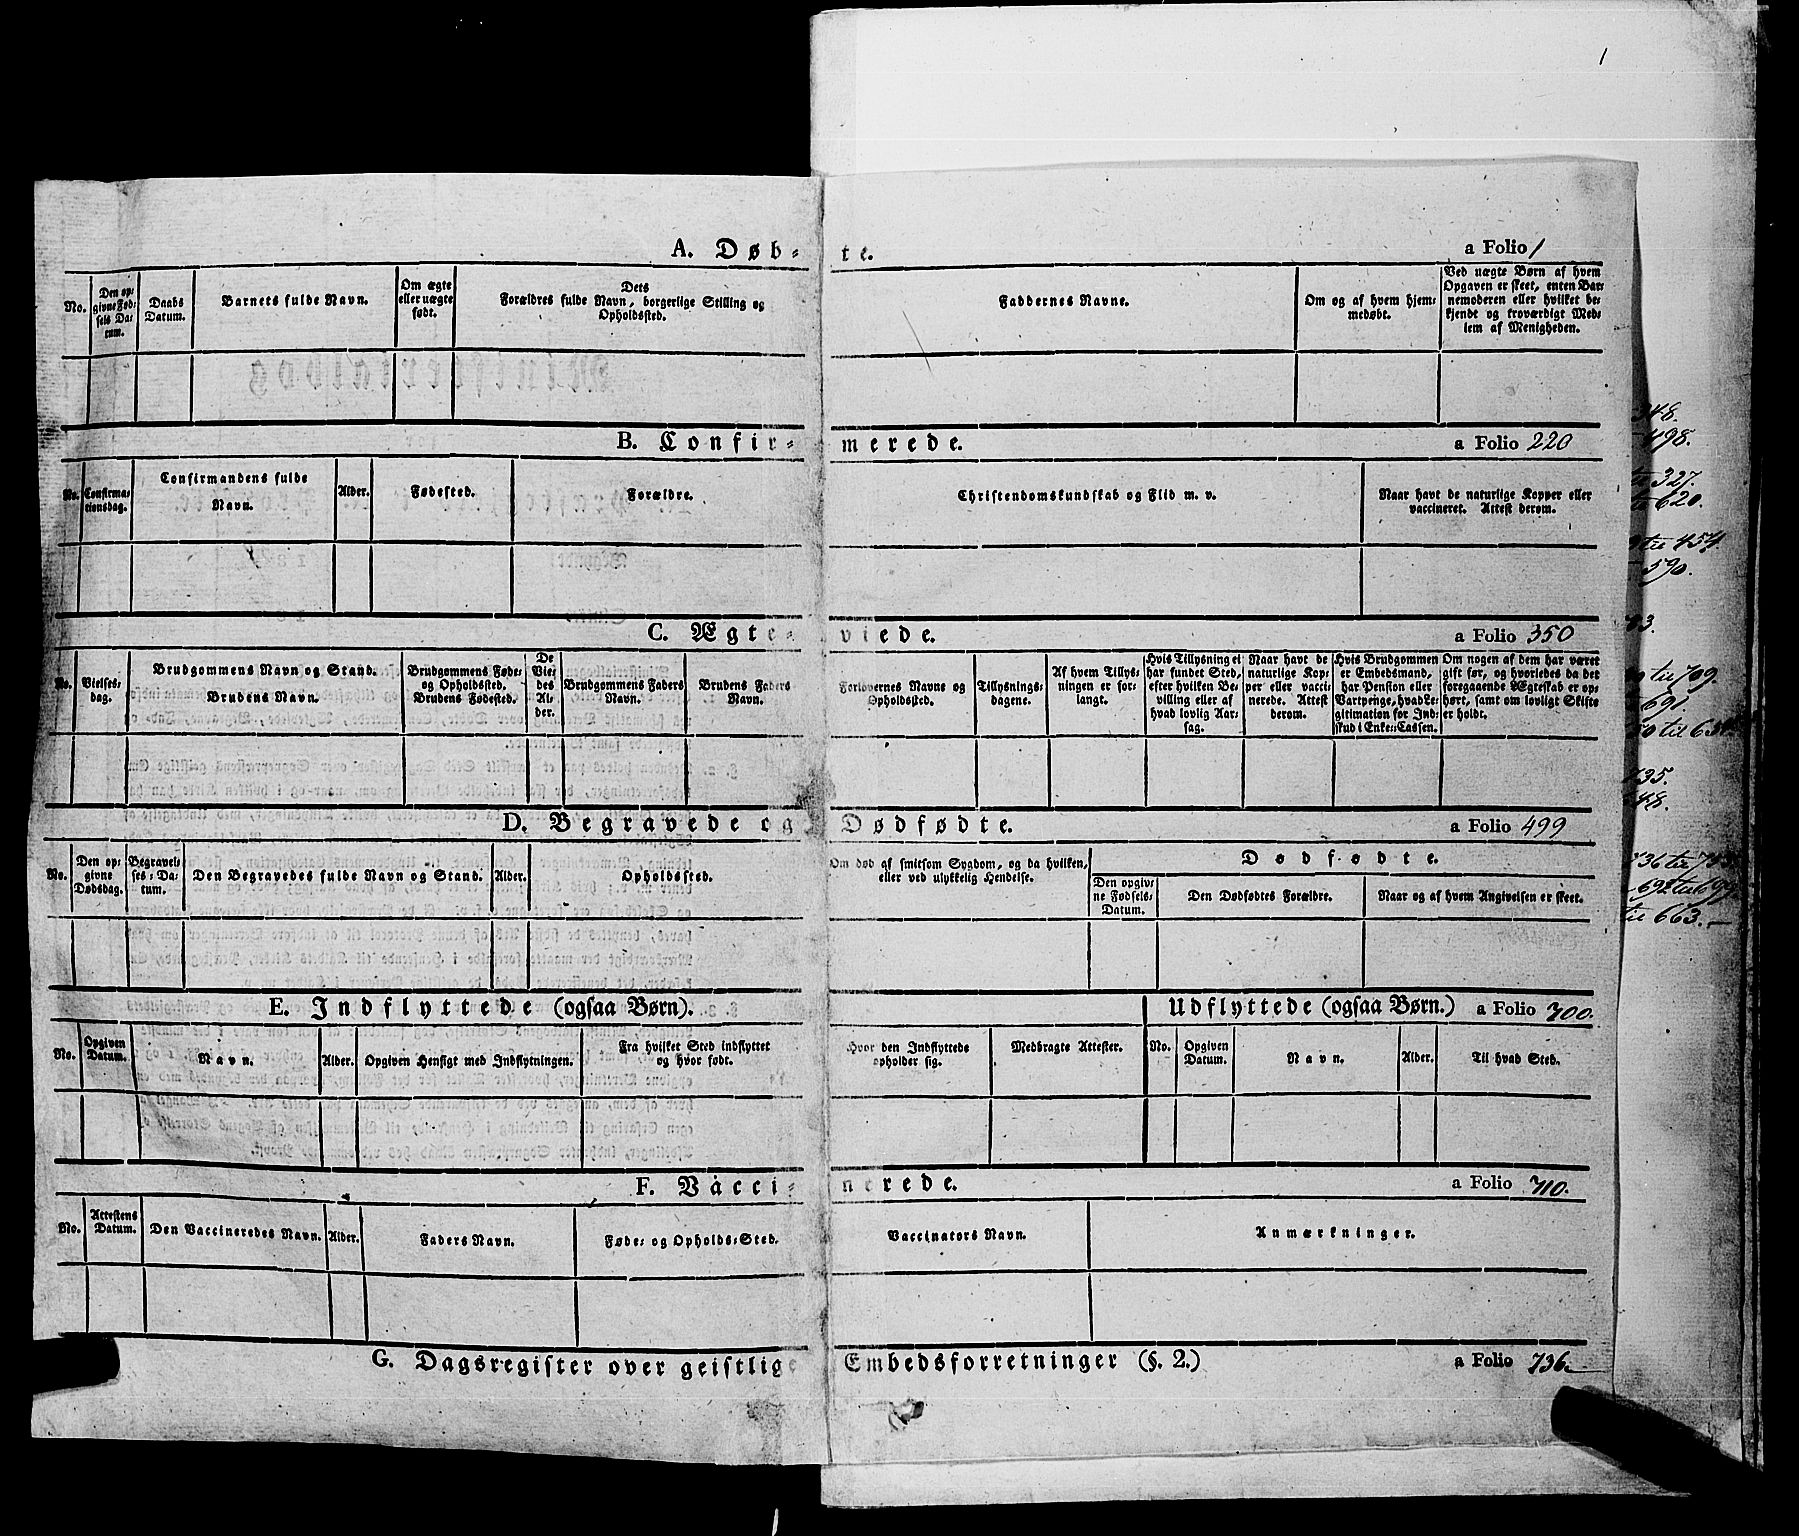 1
A. Døb- te. a Folio 1
No. Den opgivne Fødsels Datum. Daabs Datum. Barnets fulde Navn. Om ægte eller uægte født. Dets Forældres fulde Navn, borgerlige Stilling og Opholdssted. Faddernes Navne. Om og af hvem hjemmedøbt. Ved uægte Børn af hvem Opgaven er skeet, enten Barnemoderen eller hvilket bekjendt og troværdigt Medlem af Menigheden.
B. Confir- merede. a Folio 220
No. Confirmationsdag. Confirmandens fulde Navn. Alder. Fødested. Forældre. Christendomskundskab og Flid m. v. Naar havt de naturlige Kopper eller vaccineret. Attest derom.
C. Ægte- viede. a Folio 350
No. Vielsesdag. Brudgommens Navn og Stand. Brudens Navn. Brudgommens Føde- og Opholdssted. Brudens Fødested. De Viedes Alder. Brudgommens Faders Navn. Brudens Faders Navn. Forlovernes Navne og Opholdssted. Tillysningsdagene. Af hvem Tillysningen er forlangt. Hvis Tillysning ei har fundet Sted, efter hvilken Bevilling eller af hvad lovlig Aarsag. Naar havt de naturlige Kopper eller vaccinerede. Attest derom. Hvis Brudgommen er Embedsmand, har Pension eller Vartpenge, hvad Legitimation for Indskud i Enke-Cassen. Om nogen af dem har været gift før, og hvorledes da det foregaaende Ægteskab er ophørt, samt om lovligt Skifte er holdt.
D. Begravede og Dødfødte. a Folio 499
No. Den opgivne Dødsdag. Begravelses-Datum. Den Begravedes fulde Navn og Stand. Alder. Opholdssted. Om død af smitsom Sygdom, og da hvilken, eller ved ulykkelig Hendelse. Dødfødte. Den opgivne Fødsels-Datum. Den Dødfødtes Forældre. Naar og af hvem Angivelsen er skeet.
E. Indflyttede (ogsaa Børn). Udflyttede (ogsaa Børn.) a Folio 700.
No. Opgiven Datum. Navn. Alder. Opgiven Hensigt med Indflytningen. Fra hvilket Sted indflyttet og hvor født. Hvor den Indflyttede opholder sig. Medbragte Attester. No. Opgiven Datum. Navn. Alder. Til hvad Sted.
F. Vacci- nerede. a Folio 710.
No. Attestens Datum. Den Vaccineredes Navn. Alder. Faders Navn. Føde- og Opholds-Sted. Vaccinators Navn. Anmærkninger.
G. Dagsregister over geistlige Embedsforretninger (§. 2.) a Folio 736.
348.
498.
327.
620.
til 454.
590.
til 709.
691.
til 634
735.
til 663.